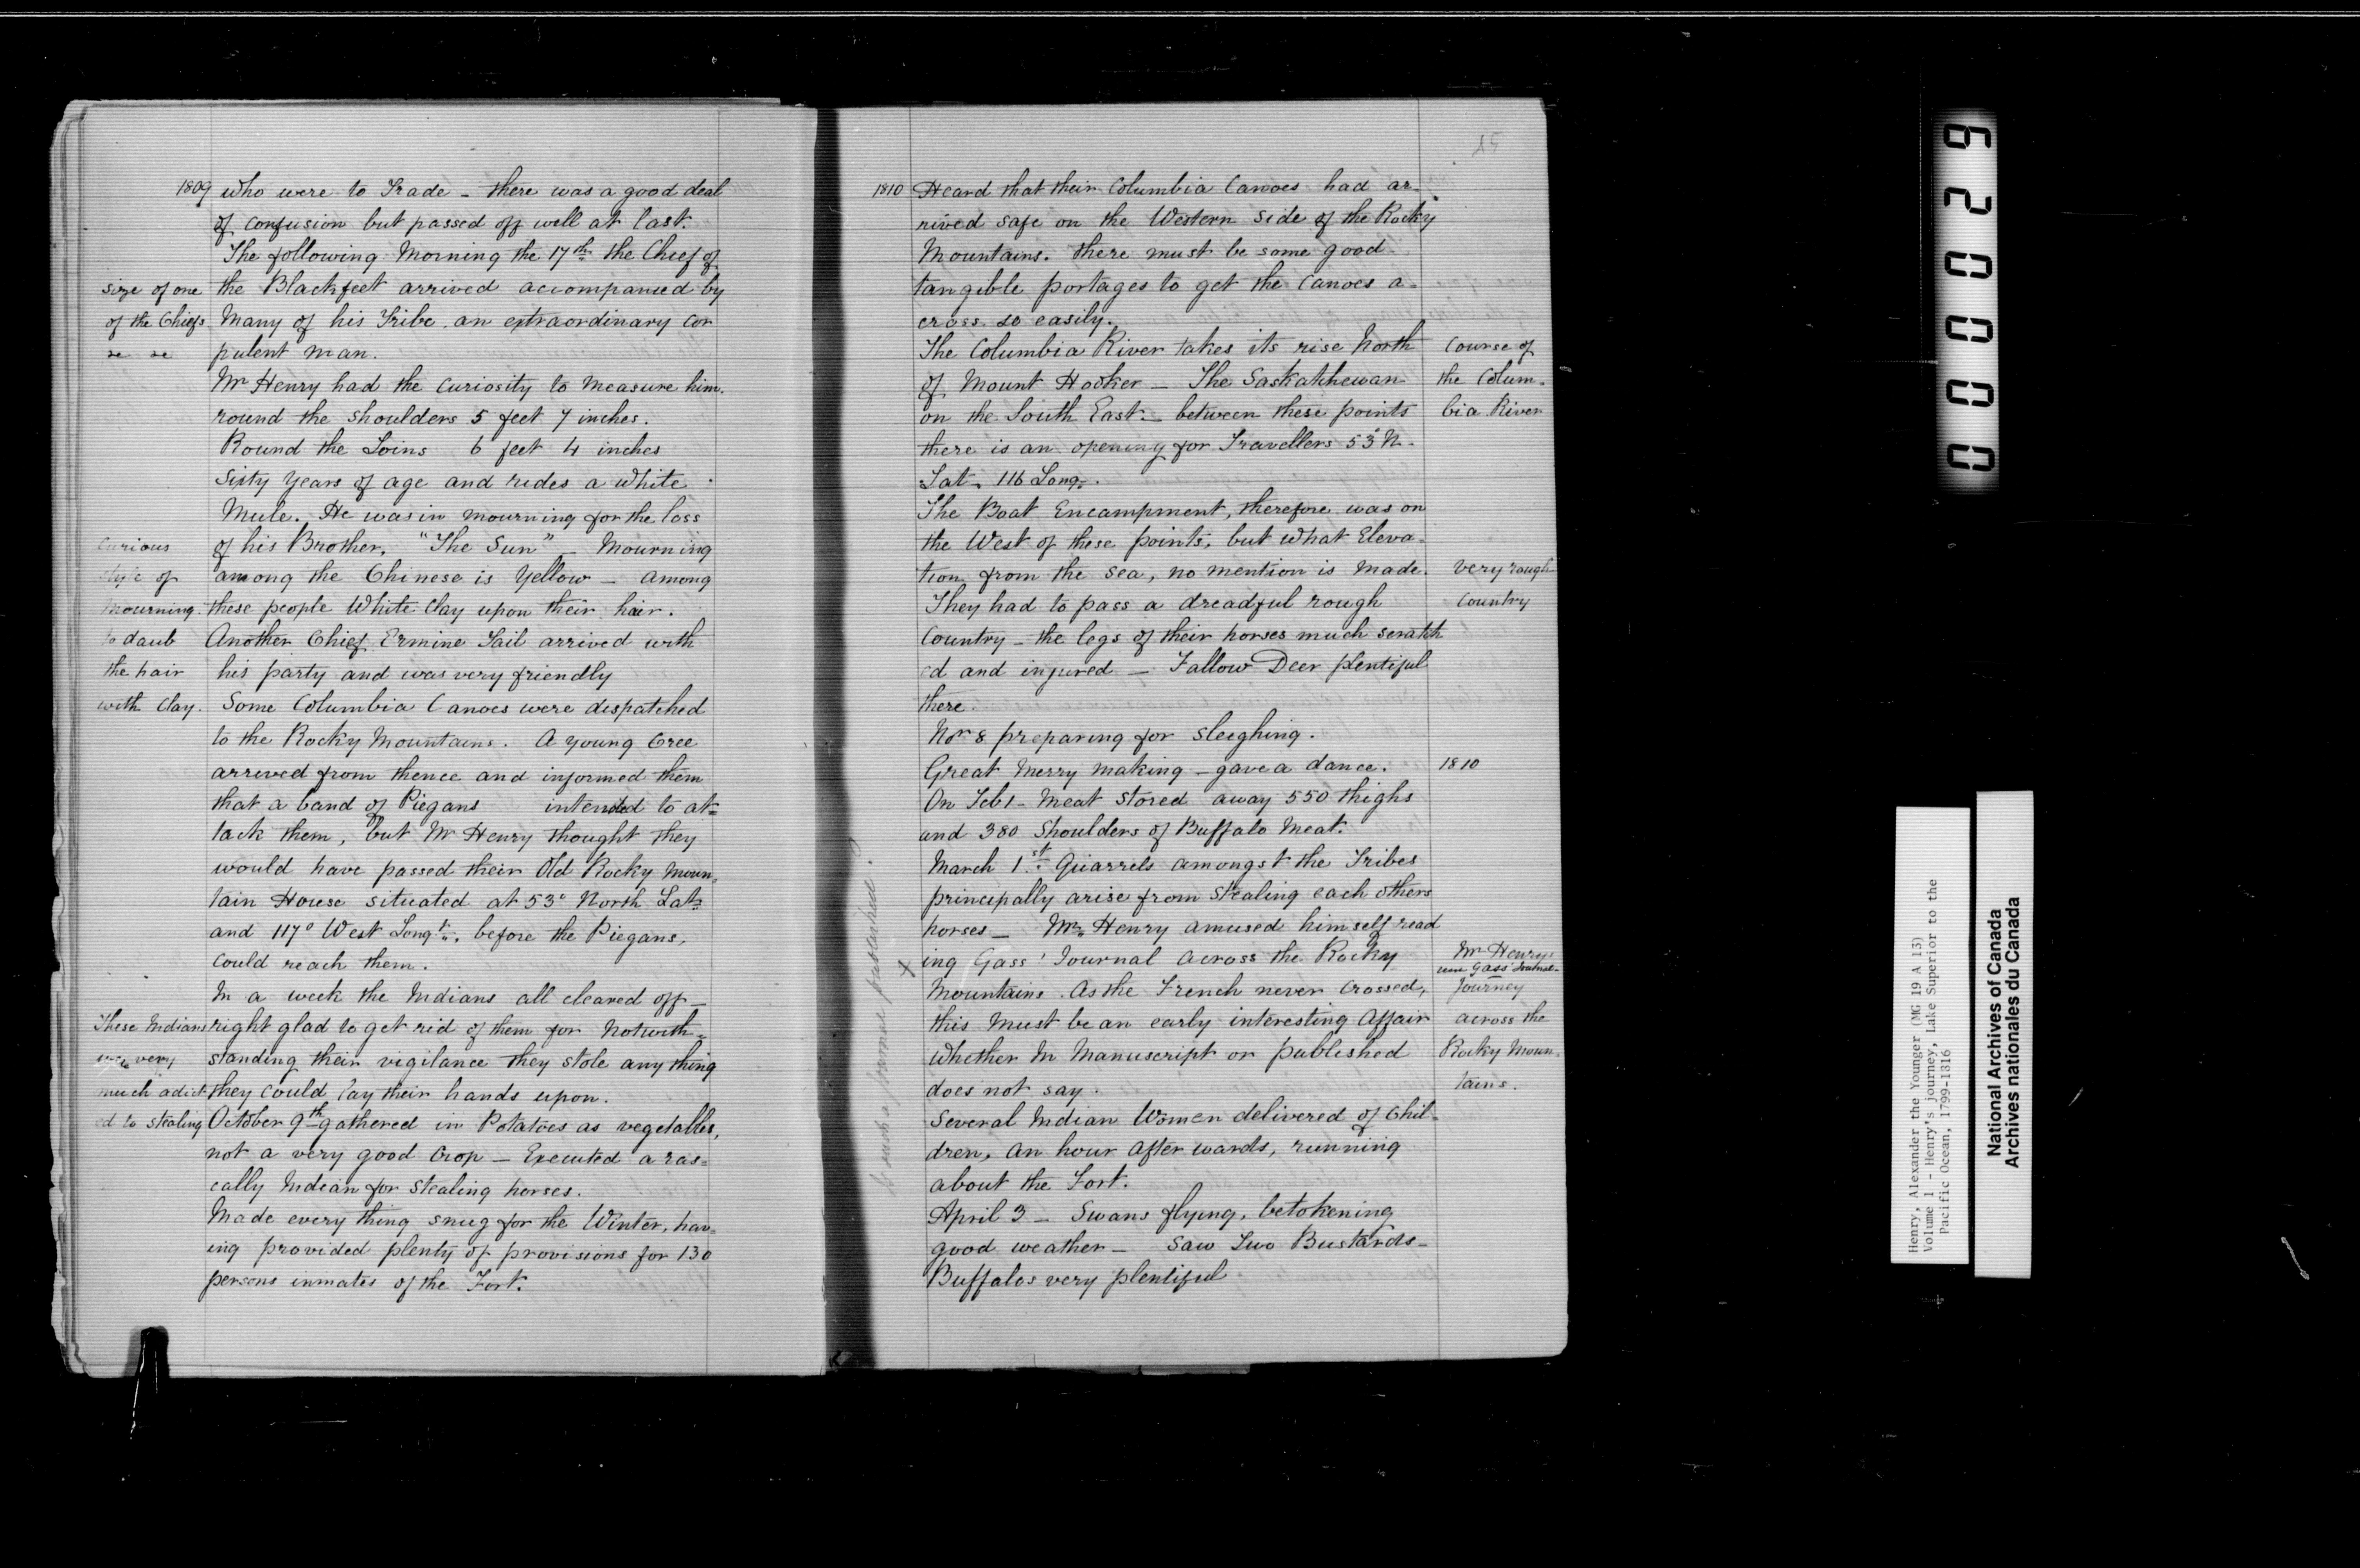 1809 who were to Trade - there was a good deal
of confusion but passed off well at last.
The following Morning the 17th the Chief of
size of one the Blackfeet arrived accompanied by
of the Chiefs Many of his Tribe. an extraordinary cor
pulent man.
Mr Henry had the curiosity to measure him.
round the shoulders 5 feet 7 inches.
Round the Loins 6 feet 4 inches
Sixty Years of age and rides a White
Mule. He was in mourning for the loss
Curious of his Brother. "The Sun" - Mourning
style of among the Chinese is Yellow - among
Mourning. these people White Clay upon their hair.
to daub Another Chief Ermine Tail arrived with
the hair his party and was very friendly
with Clay. Some Columbia Canoes were despatched
to the Rocky Mountains. A young Cree
arrived from thence and informed them
that a band of Piegans intended to at=
tack them, but Mr Henry thought they
would have passed their Old Rocky Moun=
tain House situated at 53° North Lat=
and 117° West Longt. before the Piegans,
could reach them.
In a week the Indians all cleared off -
These Indians right glad to get rid of them for Notwith=
very standing their vigilance they stole any thing
much adict they could lay their hands upon.
ed to stealing October 9th gathered in Potatoes as vegetables,
not a very good crop - Executed a ras=
cally Indian for stealing horses.
Made every thing snug for the Winter, hav=
ing provided plenty of provisions for 130
persons inmates of the Fort.
15
1810 Heard that their Columbia Canoes had ar=
rived safe on the Western side of the Rocky
Mountains. there must be some good
tangible portages to get the Canoes a=
cross so easily.
The Columbia River takes its rise North Course of
of Mount Hooker - The Saskatchewan the Colum=
on the South East - between these points bia River
there is an opening for Travellers 53° N.
Lat. 116 Long.
The Boat Encampment, therefore was on
the West of these points, but what Eleva=
tion from the sea, no mention is made. very rough
They had to pass a dreadful rough Country
Country - the legs of their horses much scratch
ed and injured - Fallow Deer plentiful
there.
Nor 8 preparing for sleeghing.
Great Merry making - gave a dance. 1810
On Feb 1 - Meat stored away 550 thighs
and 380 Shoulders of Buffalo Meat.
March 1st Quarrels amongst the Tribes
principally arise from Stealing each others
horses - Mr. Henry amused himself read
x ing Gass' Journal across the Rocky Mr Henrys
Gass' Journal
Mountains. As the French never crossed, Journey
this must be an early interesting Affair across the
whether in Manuscript or published Rocky Moun=
does not say. tains.
Several Indian Women delivered of Chil=
dren, an hour afterwards, running
about the Fort.
April 3 - Swans flying, betokening
good weather - Saw Two Bustards -
Buffalos very plentiful
000029
Henry, Alexander the Younger (MG 19 A 13)
Volume 1 - Henry's journey, Lake Superior to the
Pacific Ocean, 1799-1816
National Archives of Canada
Archives nationales du Canada